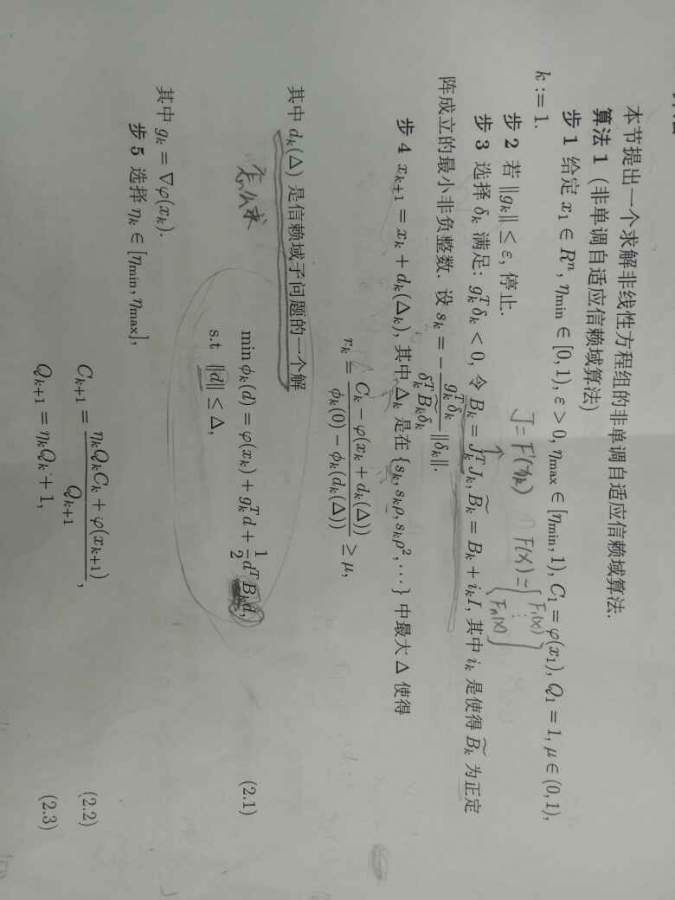 本节提出一个求解非线性方程组的非单调自适应信赖域算法.
算法 1 (非单调自适应信赖域算法)
步 1 给定 x₁ ∈ Rⁿ, η_min ∈ [0, 1), ε > 0, η_max ∈ [η_min, 1), C₁ = φ(x₁), Q₁ = 1, μ ∈ (0, 1),
k := 1.
J = F'(x_k) F(x) = { F₁(x) ⋮ Fₙ(x) }
步 2 若 ‖g_k‖ ≤ ε, 停止.
步 3 选择 δ_k 满足: g_k^T δ_k < 0, 令 B_k = J_k^T J_k, B̃_k = B_k + i_k I, 其中 i_k 是使得 B̃_k 为正定
阵成立的最小非负整数. 设 s_k = − (g_k^T δ_k)/(δ_k^T B̃_k δ_k) ‖δ_k‖.
步 4 x_{k+1} = x_k + d_k(Δ_k), 其中 Δ_k 是在 {s_k, s_kρ, s_kρ², ⋯} 中最大 Δ 使得
r_k = (C_k − φ(x_k + d_k(Δ)))/(ϕ_k(0) − ϕ_k(d_k(Δ))) ≥ μ,
其中 d_k(Δ) 是信赖域子问题的一个解
怎么求
min ϕ_k(d) = φ(x_k) + g_k^T d + (1/2) d^T B_k d, (2.1)
s.t ‖d‖ ≤ Δ,
其中 g_k = ∇φ(x_k).
步 5 选择 η_k ∈ [η_min, η_max],
C_{k+1} = (η_k Q_k C_k + φ(x_{k+1}))/Q_{k+1}, (2.2)
Q_{k+1} = η_k Q_k + 1, (2.3)